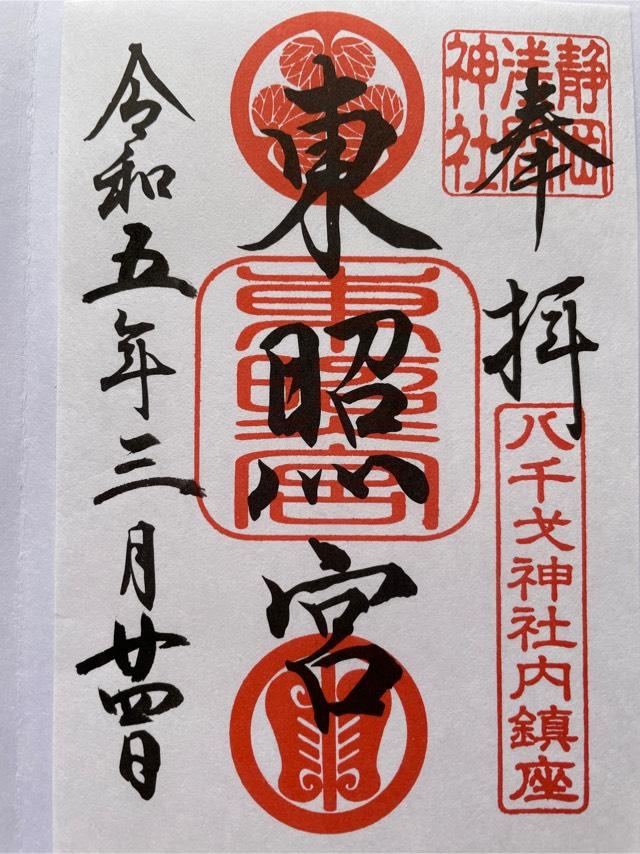 奉拝
静岡
浅間
神社
八千戈神社内鎮座
東照宮
東照宮
令和五年三月廿四日